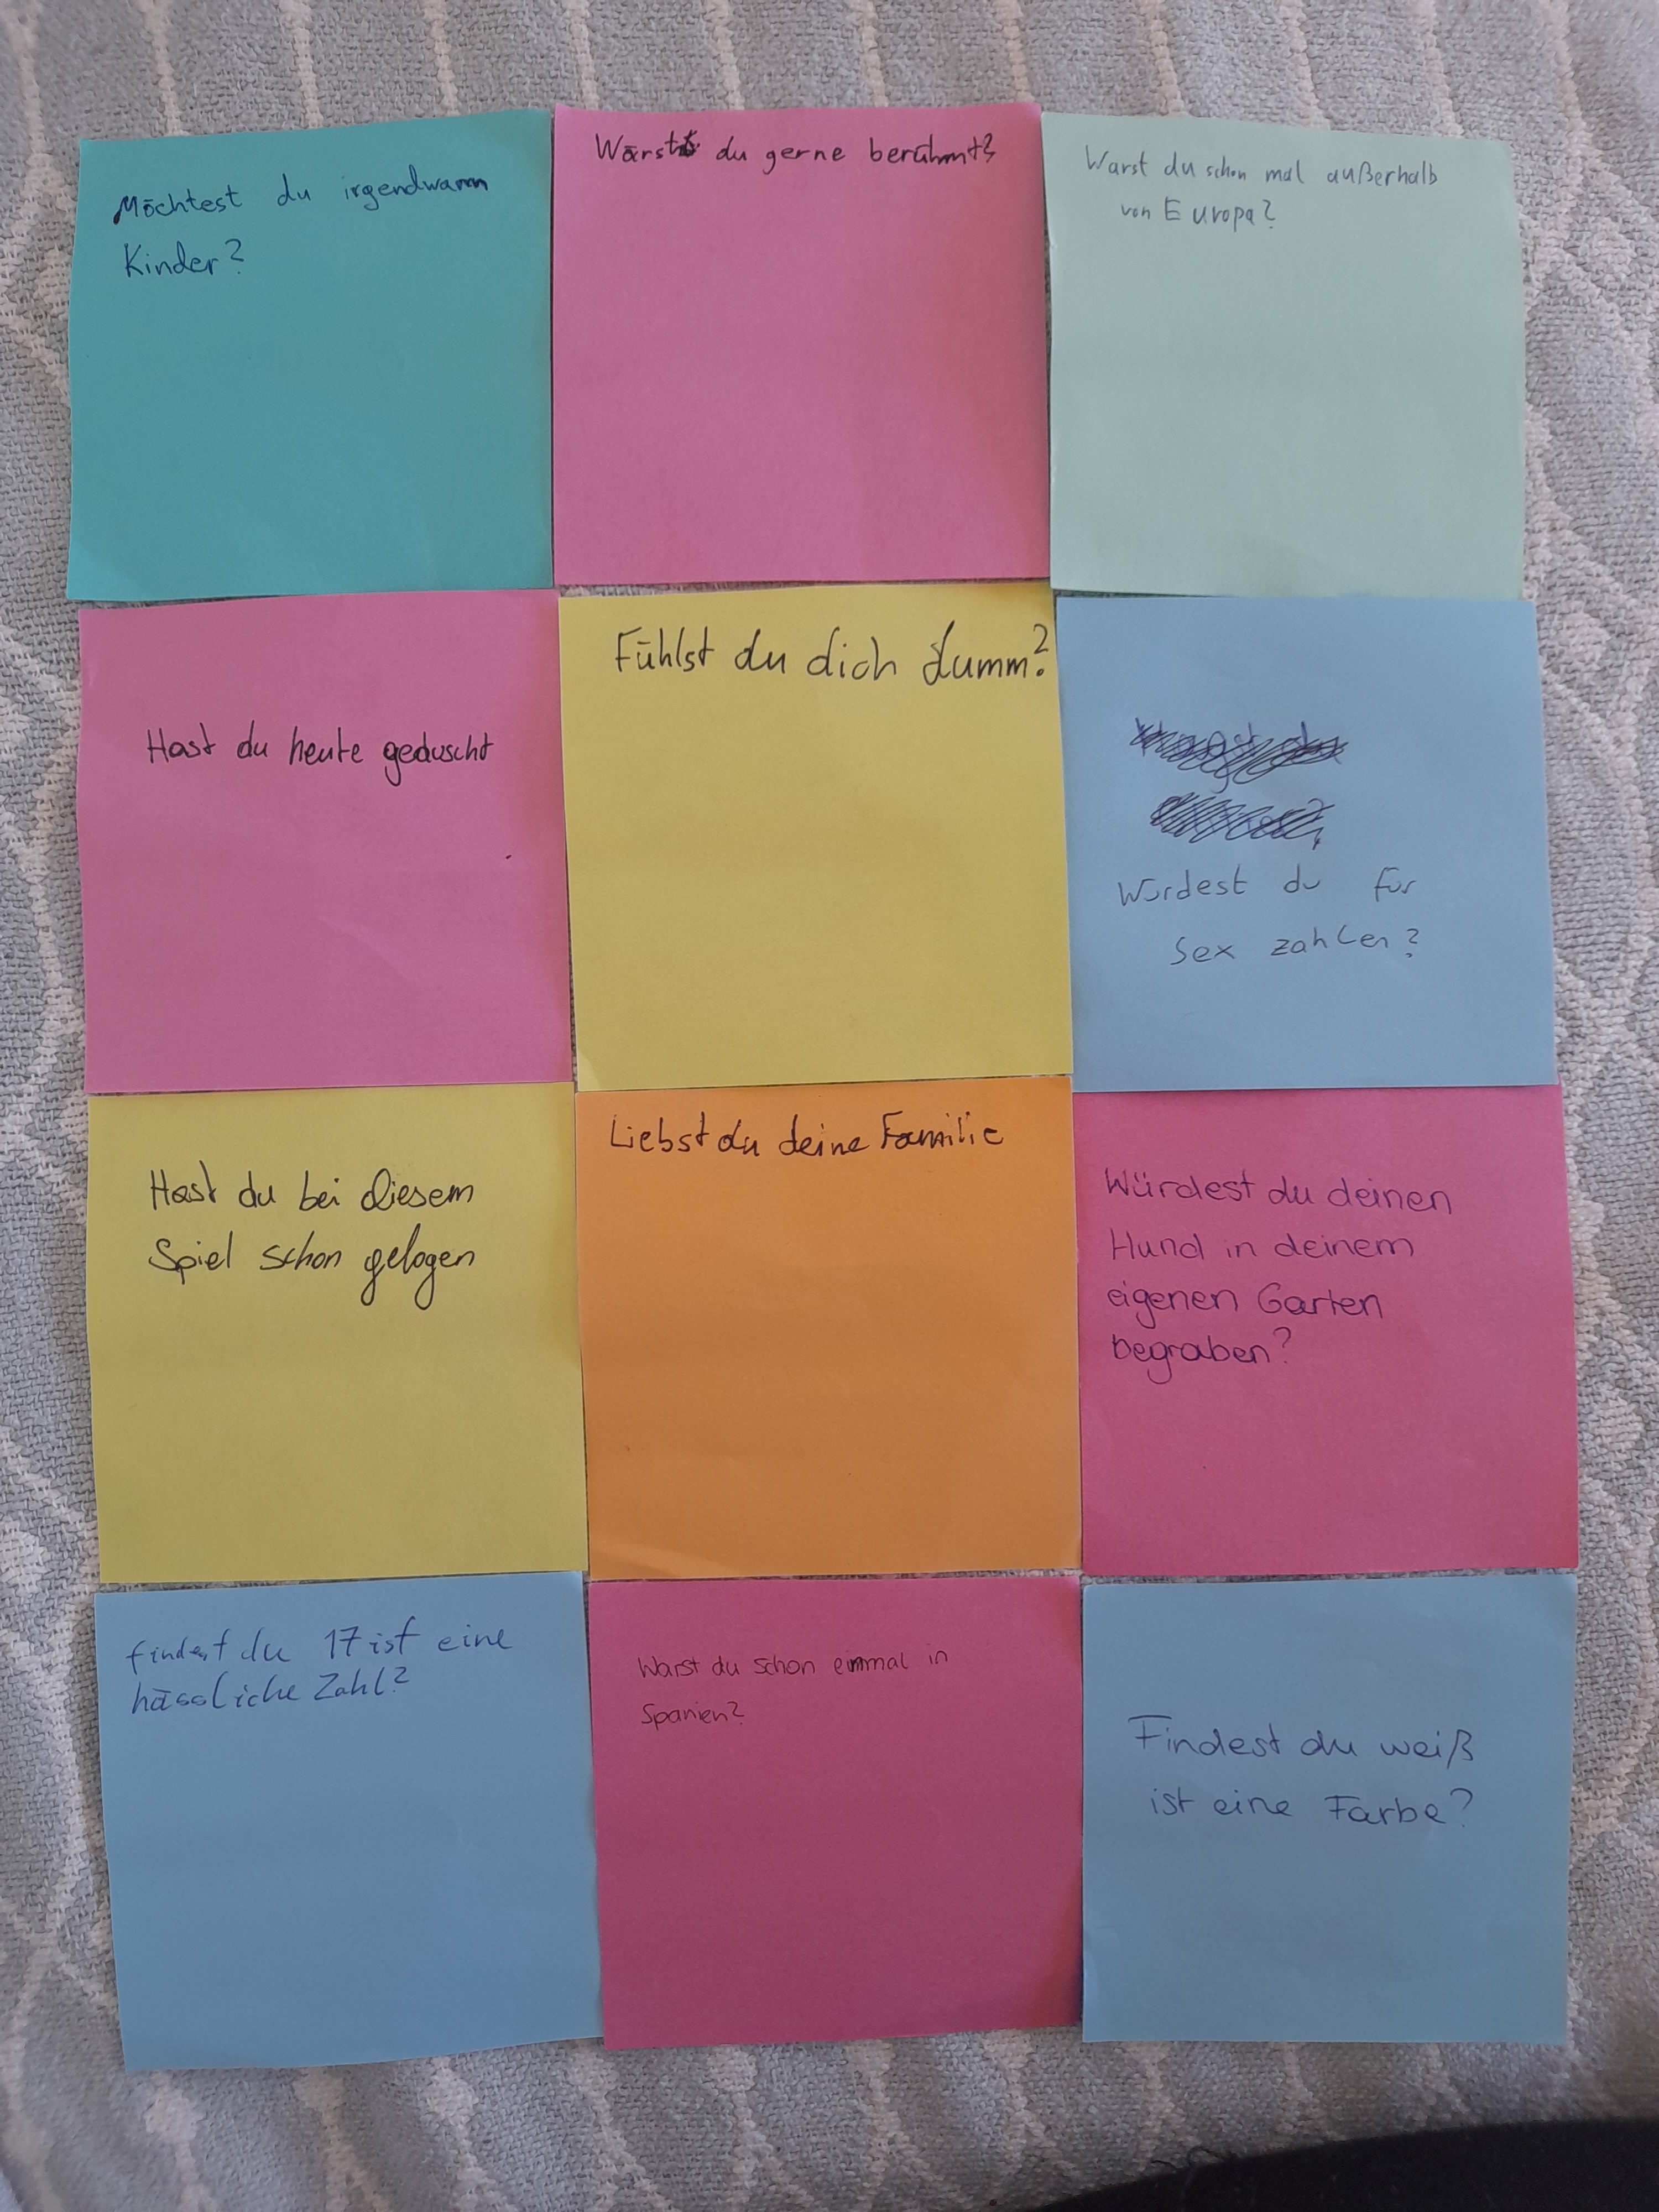 Möchtest du irgendwann
Kinder?
Wärst du gerne berühmt?
Warst du schon mal außerhalb
von Europa?
Hast du heute geduscht
Fühlst du dich dumm?
Würdest du für
Sex zahlen?
Hast du bei diesem
Spiel schon gelogen
Liebst du deine Familie
Würdest du deinen
Hund in deinem
eigenen Garten
begraben?
findest du 17 ist eine
hässliche Zahl?
Warst du schon einmal in
Spanien?
Findest du weiß
ist eine Farbe?